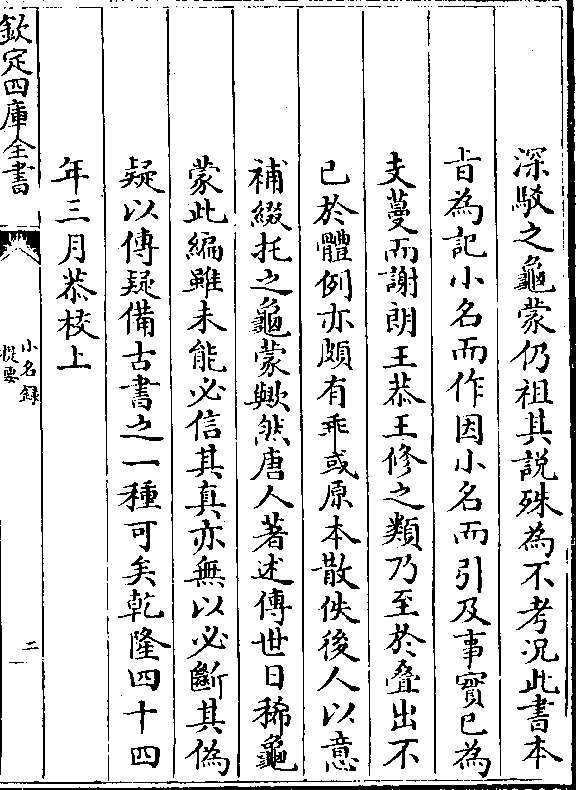 深駁之龜蒙仍祖其説殊為不考况此書本
㫖為記小名而作因小名而引及事實已為
支蔓而謝朗王恭王修之類乃至於叠出不
已於體例亦頗有乖或原本散佚後人以意
補綴托之龜蒙歟然唐人著述傳世日稀龜
蒙此編雖未能必信其真亦無以必斷其偽
疑以傳疑備古書之一種可矣乾隆四十四
年三月恭校上
欽定四庫全書
小名録
提要
二